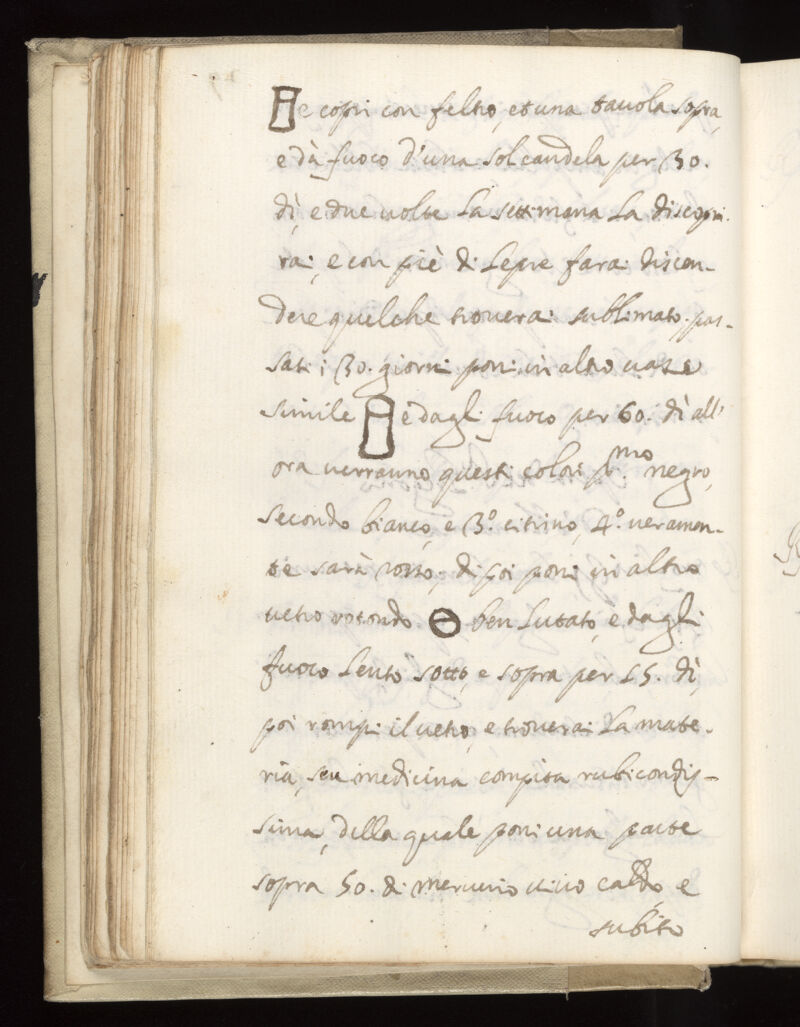 e copri con feltro, et una tavola sopra,
e dà fuoco d'una sol candela per 30.
dì, e due uolte La settimana La discopri-
rai, e con piè di Lepre farai discen-
dere quelche trouerai sublimato. pas-
sati i 30. giorni poni in altro uase
simile e dagli fuoco per 60. dì all'
ora uerranno questi colori pr.mo negro,
secondo bianco, e 3.º citrino, 4.º ueramen-
te sarà rosso, di poi poni in altro
uetro rotondo ben Lutato, e dagli
fuoco Lento sotto, e sopra per 15. dì,
poi rompi il uetro, e trouerai La mate-
ria, seu medicina compita rubicondis-
sima, della quale poni una parte
sopra 50. di mercurio uiuo caldo e
subito